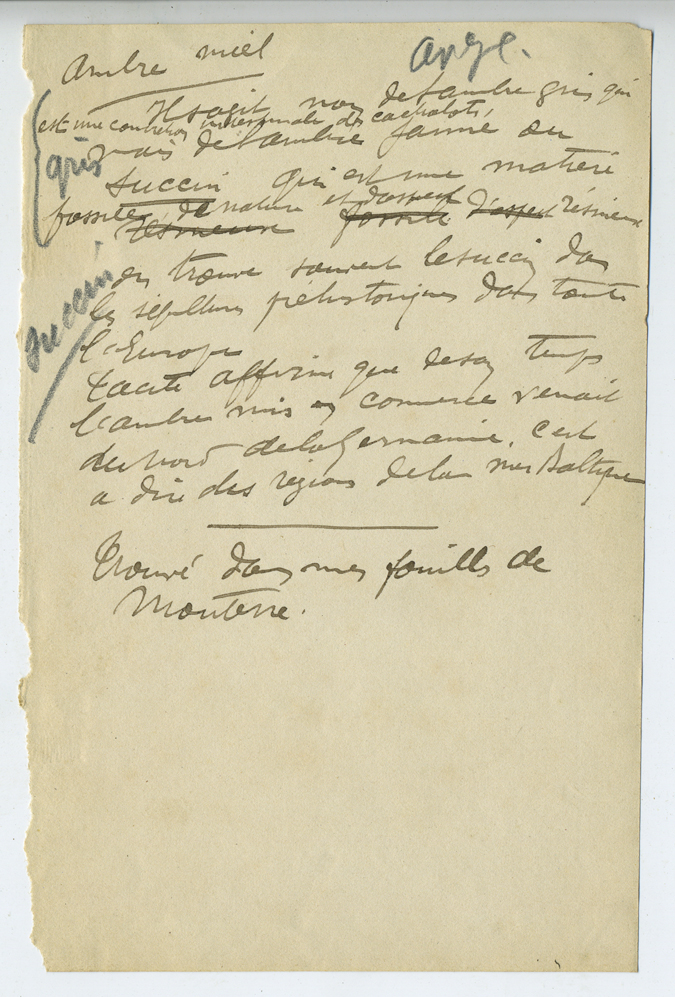 Ambre miel
Arge.
Il s'agit non de l'ambre gris qui
est une concretion intestinale des cachalots,
mais de l'ambre jaune ou
gris
succin qui est une matière
fossile, de nature et d'aspect fossile d'aspect résineux
résineux
succin
on trouve souvent le succin dans
les sépultures préhistoriques dans toute
l'Europe
Tacite affirme que de son temps
l'ambre mis en commerce venait
du nord de la Germanie, c'est
a dire des regions de la mer Baltique
Trouvé dans mes fouilles de
Mouterre.